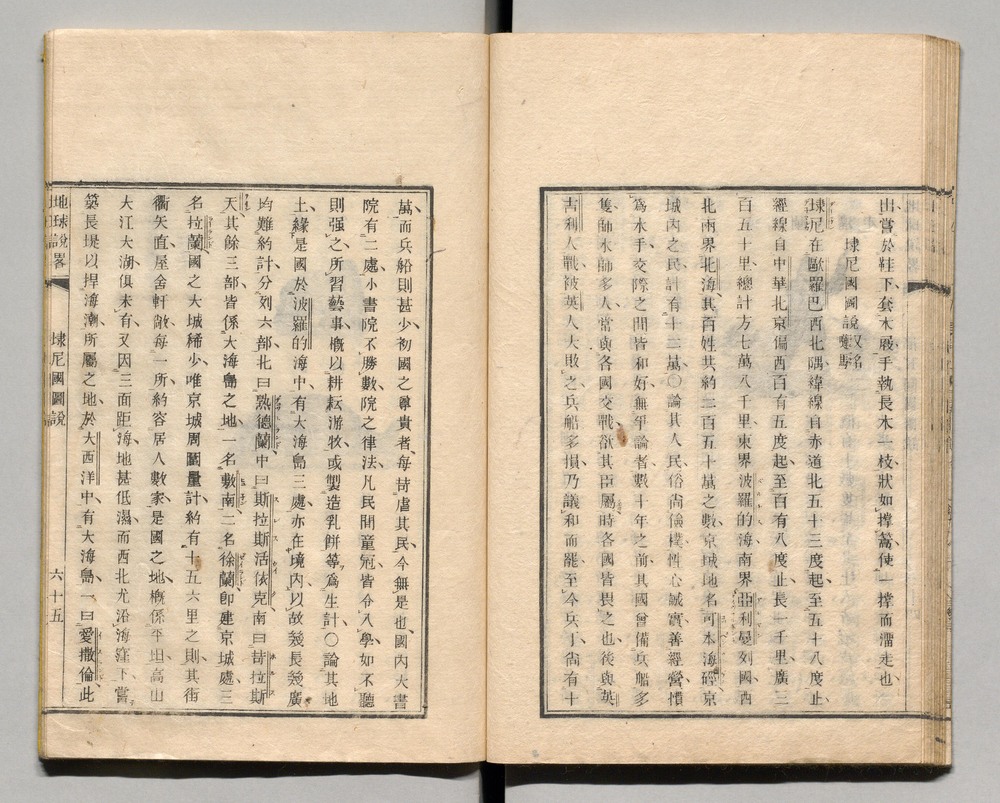 出嘗於鞋下套木屐手執長木一枝狀如撐篙使一撐而濡走也
埭尼國圖說又名嗹馬
埭尼在歐羅巴西北隅緯線自赤道北五十三度起至五十八度止
經線自中華北京偏西百有五度起至百有八度止長一千里廣三
百五十里總計方七萬八千里東界波羅的海南界亞利曼列國西
北兩界北海其百姓共約二百五十萬之數京城地名可本海徑京
城內之民計有十二萬〇論其人民俗尙儉樸性心誠實善經營慣
爲水手交際之間皆和好無爭論者數十年之前其國曾備兵船多
隻師水師多人當與各國交戰欲其臣屬時各國皆畏之也後與英
吉利人戰被英人大敗之兵船多損乃議和而罷至今兵丁尙有十
萬而兵船則甚少初國之尊貴者每苛虐其民今無是也國內大書
院有二處小書院不勝數院之律法凡民間童冠皆令入學如不聽
則强之所習藝事槪以耕耘游牧或製造乳餅等爲生計〇論其地
土緣是國於波羅的海中有大海島三處亦在境內以故幾長幾廣
均難約計分列六部北曰熟德蘭中曰斯拉斯活依克南曰苛拉斯
天其餘三部皆係大海島之地一名敷南二名徐蘭卽建京城處三
名拉蘭國之大城稀少唯京城周圍量計約有十五六里之則其街
衢矢直屋舍軒敞每一所約容居人數家是國之地槪係平坦高山
大江大湖俱未有又因三面距海地甚低濕而西北尤沿海窪下嘗
築長堤以捍海潮所屬之地於大西洋中有大海島一曰愛撒倫此
地球說畧　埭尼國圖說　六十五